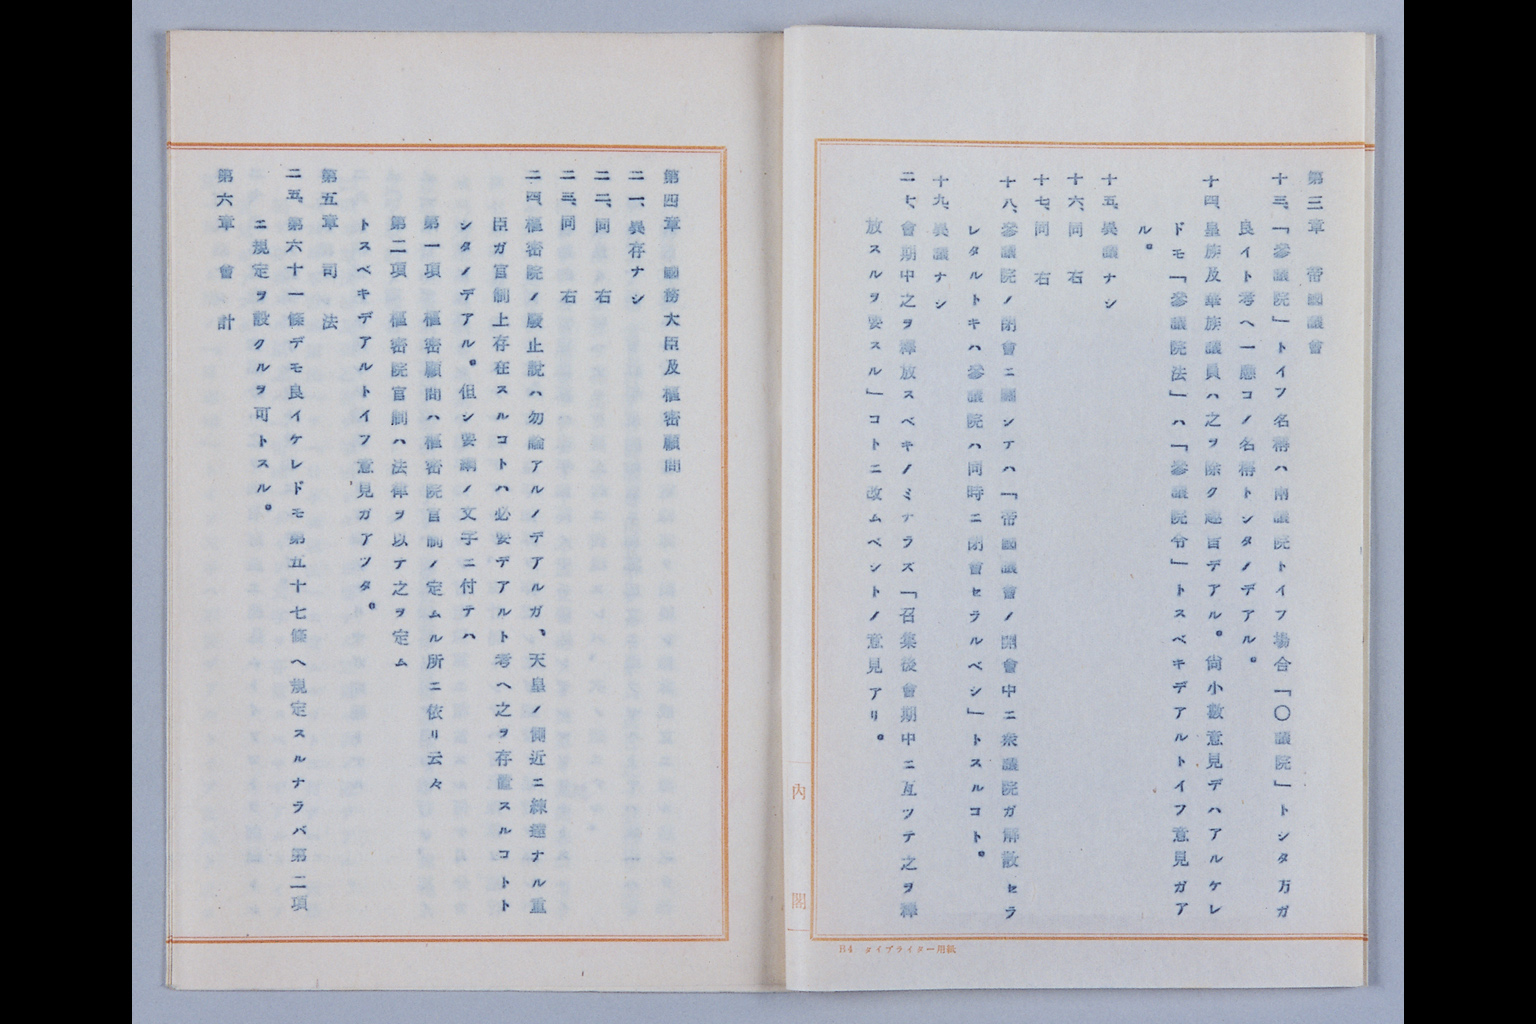 第三章　帝國議會
十三、「參議院」トイフ名稱ハ兩議院トイフ場合「〇議院」トシタ方ガ
良イト考ヘ一應コノ名稱トシタノデアル。
十四、皇族及華族議員ハ之ヲ除ク趣旨デアル。尙小數意見デハアルケレ
ドモ「參議院法」ハ「參議院令」トスベキデアルトイフ意見ガア
ル。
十五、異議ナシ
十六、同　右
十七、同　右
十八、參議院ノ閉會ニ關シテハ「帝國議會ノ開會中ニ衆議院ガ解散セラ
レタルトキハ參議院ハ同時ニ閉會セラルベシ」トスルコト。
十九、異議ナシ
二十、會期中之ヲ釋放スベキノミナラズ「召集後會期中ニ亙ツテ之ヲ釋
放スルヲ要スル」コトニ改ムベシトノ意見アリ。
第四章　國務大臣及樞密顧問
二一、異存ナシ
二二、同　右
二三、同　右
二四、樞密院ノ廢止說ハ勿論アルノデアルガ、天皇ノ側近ニ練達ナル重
臣ガ官制上存在スルコトハ必要デアルト考ヘ之ヲ存置スルコトト
シタノデアル。但シ要綱ノ文字ニ付テハ
第一項　樞密顧問ハ樞密院官制ノ定ムル所ニ依リ云々
第二項　樞密院官制ハ法律ヲ以テ之ヲ定ム
トスベキデアルトイフ意見ガアツタ。
第五章　司　法
二五、第六十一條デモ良イケレドモ第五十七條ヘ規定スルナラバ第二項
ニ規定ヲ設クルヲ可トスル。
第六章　會　計
內　閣
B4　タイプライター用紙